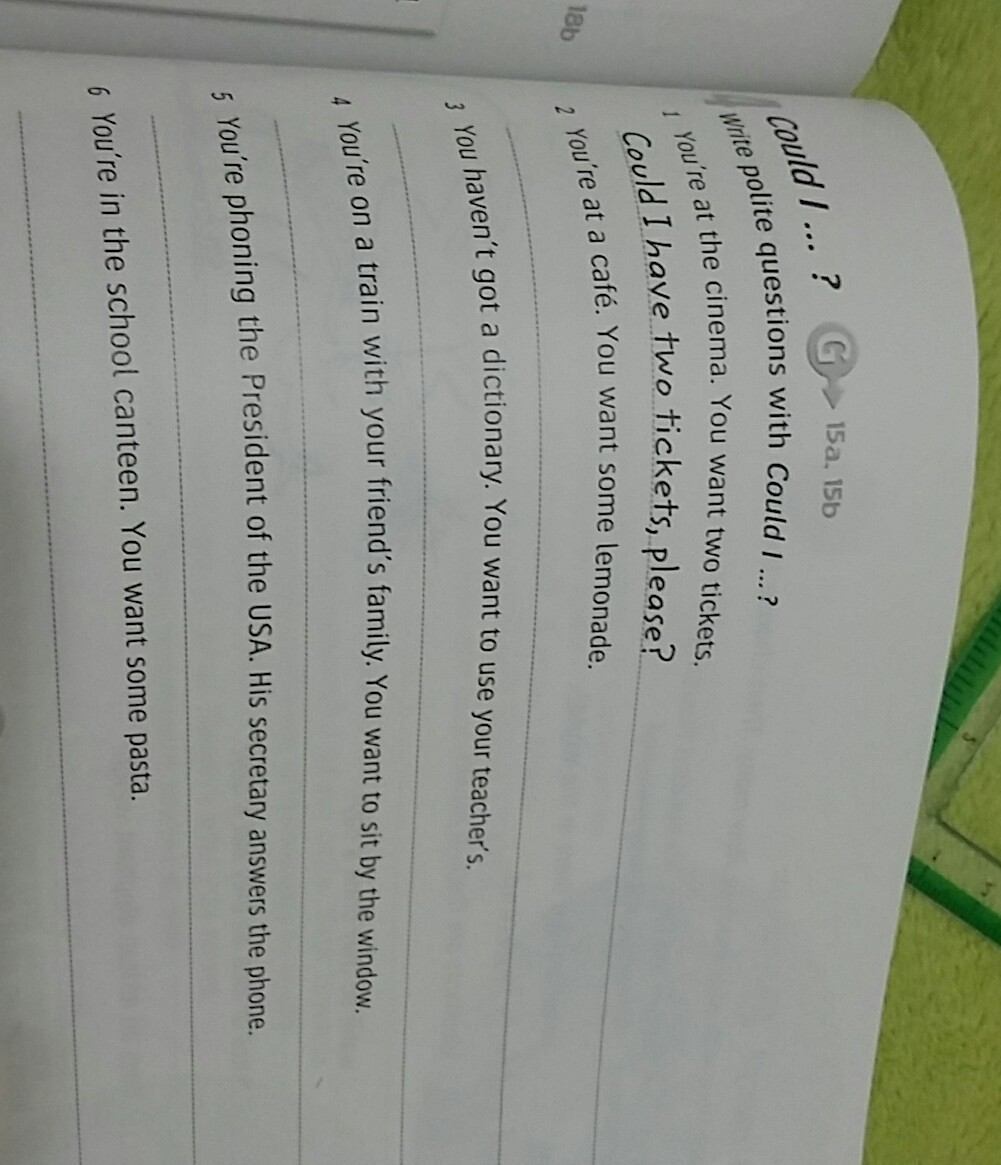 18b
Could I ... ? G 15a, 15b
Write polite questions with Could I ...?
1 You're at the cinema. You want two tickets.
Could I have two tickets, please?
2 You're at a café. You want some lemonade.
3 You haven't got a dictionary. You want to use your teacher's.
4 You're on a train with your friend's family. You want to sit by the window.
5 You're phoning the President of the USA. His secretary answers the phone.
6 You're in the school canteen. You want some pasta.